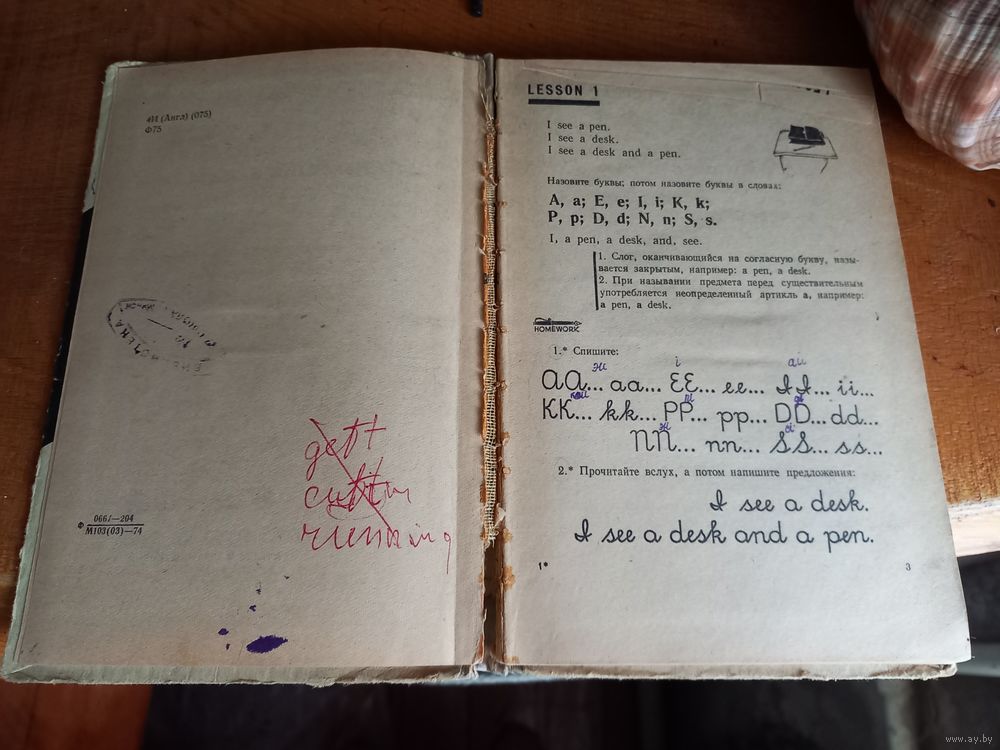 4И (Англ) (075)
Ф75
gett
running
Ф 066/—204
М103(03)—74
LESSON 1
I see a pen.
I see a desk.
I see a desk and a pen.
Назовите буквы; потом назовите буквы в словах:
A, a; E, e; I, i; K, k;
P, p; D, d; N, n; S, s.
I, a pen, a desk, and, see.
1. Слог, оканчивающийся на согласную букву, назы-
вается закрытым, например: a pen, a desk.
2. При назывании предмета перед существительным
употребляется неопределенный артикль a, например:
a pen, a desk.
HOMEWORK
1.* Спишите:
AA... aa... EE... ee... II... ii...
KK... kk... PP... pp... DD... dd...
NN... nn... SS... ss...
2.* Прочитайте вслух, а потом напишите предложения:
I see a desk.
I see a desk and a pen.
1*
3
www.ay.by